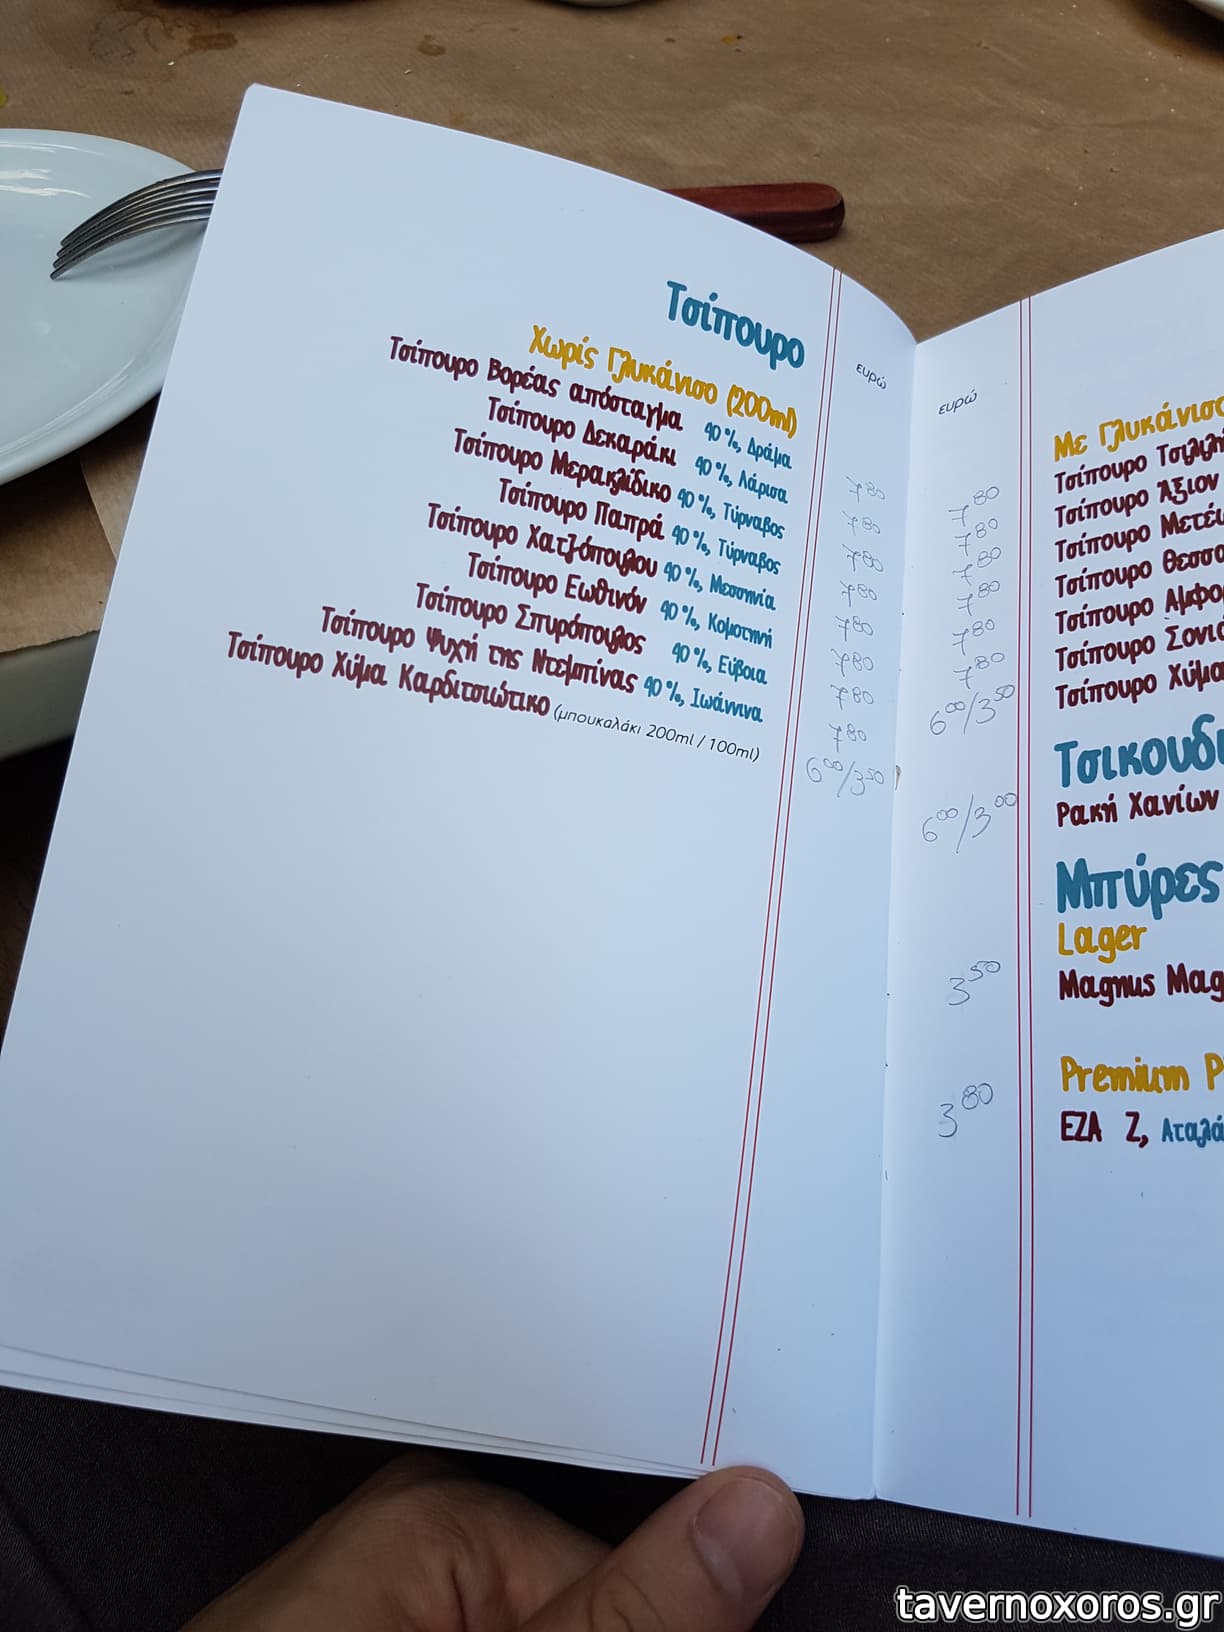 Τσίπουρο
ευρώ
Χωρίς Γλυκάνισο (200ml)
Τσίπουρο Βορέας απόσταγμα 40%, Δράμα 7 80
Τσίπουρο Δεκαράκι 40%, Λάρισα 7 80
Τσίπουρο Μερακλίδικο 40%, Τύρναβος 7 80
Τσίπουρο Παπρά 40%, Τύρναβος 7 80
Τσίπουρο Χατζόπουλου 40%, Μεσσηνία 7 80
Τσίπουρο Εωθινόν 40%, Κομοτηνή 7 80
Τσίπουρο Σπυρόπουλος 40%, Εύβοια 7 80
Τσίπουρο Ψυχή της Ντεμπίνας 40%, Ιωάννινα 7 80
Τσίπουρο Χύμα Καρδιτσιώτικο (μπουκαλάκι 200ml / 100ml) 6 00/3 50
ευρώ
Με Γλυκάνισο
7 80 Τσίπουρο
7 80 Τσίπουρο Άξιον
7 80 Τσίπουρο
7 80 Τσίπουρο
7 80 Τσίπουρο
7 80 Τσίπουρο
6 00/3 50 Τσίπουρο Χύμα
6 00/3 00 Ρακή Χανίων
Μπύρες
Lager
3 50 Magnus
Premium
3 80 ΕΖΑ Ζ,
tavernoxoros.gr